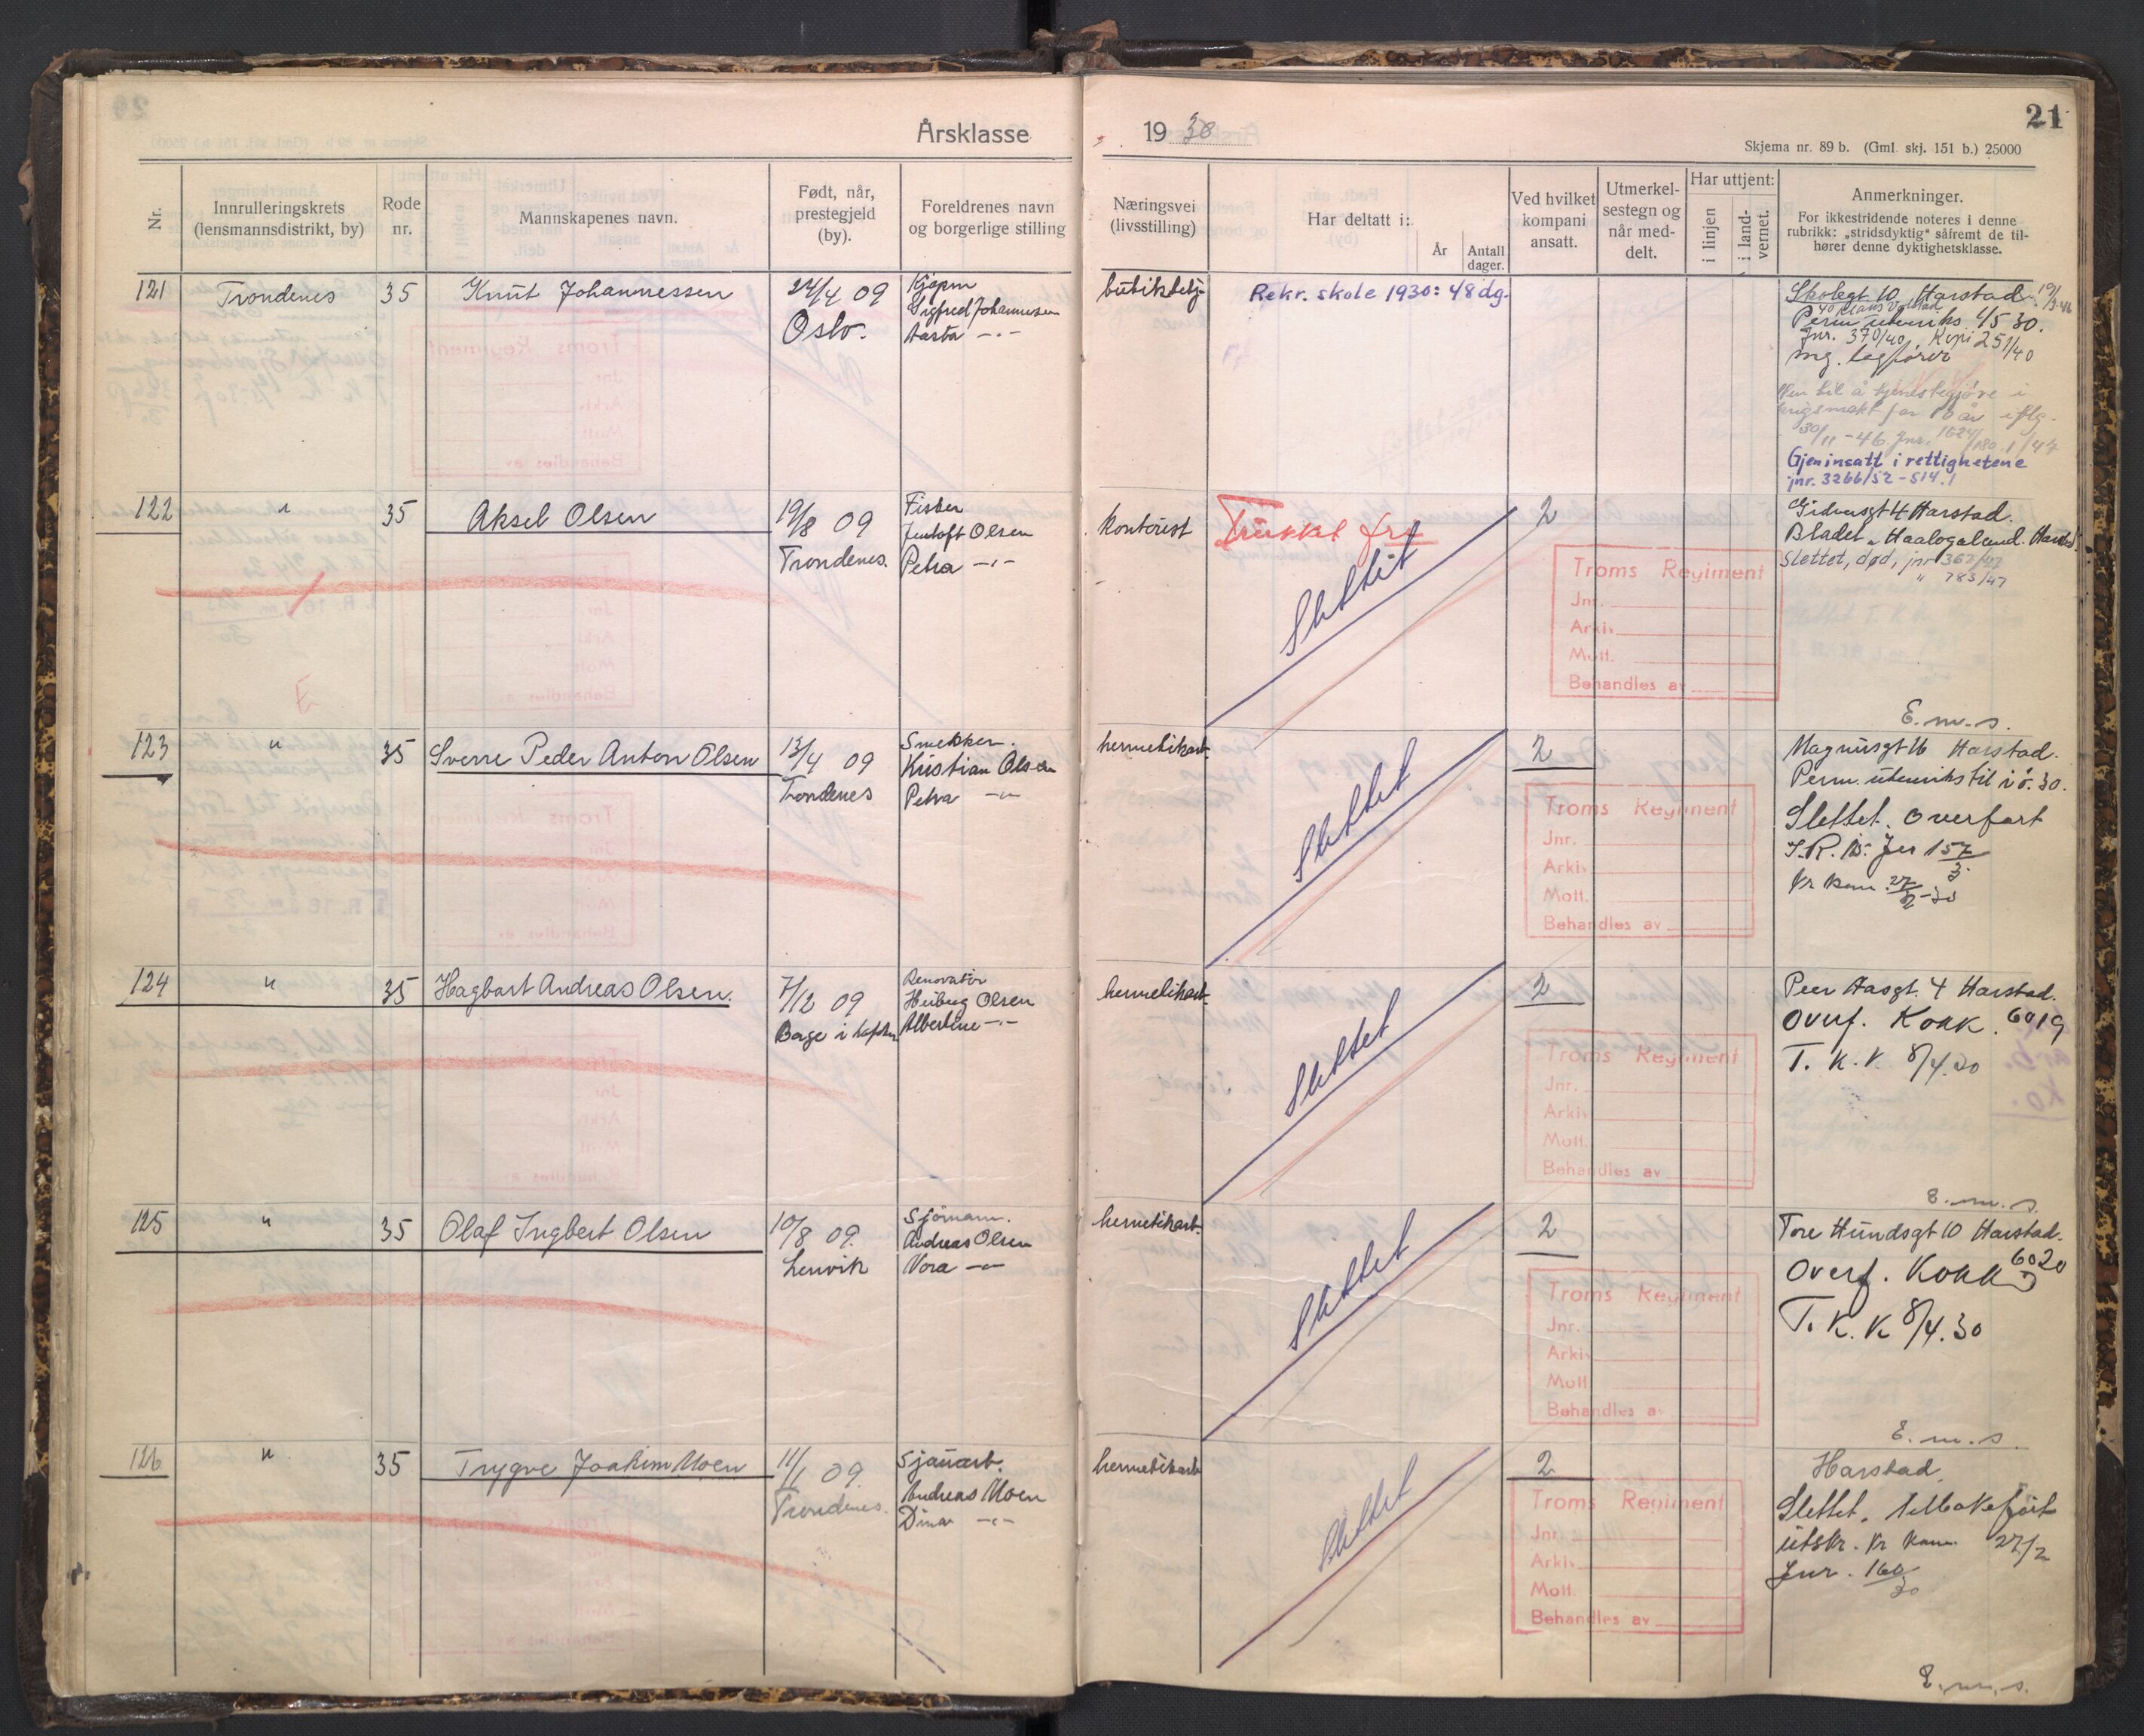 Årsklasse
1930
21
Skjema nr. 89 b. (Gml. skj. 151 b.) 25000
Nr.
Innrulleringskrets
(lensmannsdistrikt, by)
Rode
nr.
Mannskapenes navn.
Født, når,
prestegjeld
(by).
Foreldrenes navn
og borgerlige stilling
Næringsvei
(livsstilling)
Har deltatt i:
År
Antall
dager.
Ved hvilket
kompani
ansatt.
Utmerkel-
sestegn og
når med-
delt.
Har uttjent:
i linjen
i land-
vernet.
Anmerkninger.
For ikkestridende noteres i denne
rubrikk: „stridsdyktig“ såfremt de til-
hører denne dyktighetsklasse.
121 Trondenes 35 Knut Johannessen
24/4 09
Oslo.
Kjøpm
Sigfred Johannessen
Aasta -"-
butikbetj.
Rekr. skole 1930: 48 dg.
Skolegt 10 Harstad
Perm utenriks 4/5 30.
Jnr. 370/40 Kopi 251/40
mg. legfører
til å tjenestegjøre i
for 10 år iflg.
30/11 - 46 Jnr.
Gjeninsatt i rettighetene
jnr. 3266/52 - 514.1
122 " 35 Aksel Olsen
19/8 09
Trondenes.
Fisker
Jentoft Olsen
Petra -"-
kontorist
Trukket fri
Slettet
2
gt 4 Harstad.
Bladet „Haalogaland. Harstad.
Slettet, død, jnr 367/47
" 783/47
Troms Regiment
Jnr.
Arkiv
Mott.
Behandles av
E. m. s.
123 " 35 Sverre Peder Anton Olsen
13/4 09
Trondenes
Snekker.
Kristian Olsen
Petra -"-
hermetikarb.
Slettet
2
Magnusgt 16 Harstad.
Perm. utenriks til 30.
Slettet. Overført
I.R. 15. Jnr 157/3
Kr kom 27/2 -30
Troms Regiment
Jnr.
Arkiv
Mott.
Behandles av
124 " 35 Hagbart Andreas Olsen.
7/12 09
Renovatør
Heiberg Olsen
Albertine -"-
hermetikarb.
Slettet
2
Peer Aasgt. 4 Harstad.
Overf. Kokk. 6019
T. K. K. 8/4.30
Troms Regiment
Jnr.
Arkiv
Mott.
Behandles av
E. m. s.
125 " 35 Olaf Ingbert Olsen
10/8 09.
Lenvik
Sjömann.
Andreas Olsen
Nora -"-
hermetikarb.
Slettet
2
Tore Hundsgt 10 Harstad.
Overf. Kokk 6020
T. K. K 8/4.30
Troms Regiment
Jnr.
Arkiv
Mott
Behandles av
E. m. s.
126 " 35 Trygve Joakim Moen
11/1 09.
Trondenes.
Sjauarb.
Andreas Moen
Dina -"-
hermetikarb
Slettet
2
Harstad.
Slettet. tilbakeført
utskr. Kr kom. 27/2
Jnr. 160/30
Troms Regiment
Jnr.
Arkiv
Mott.
Behandles av
E. m. s.